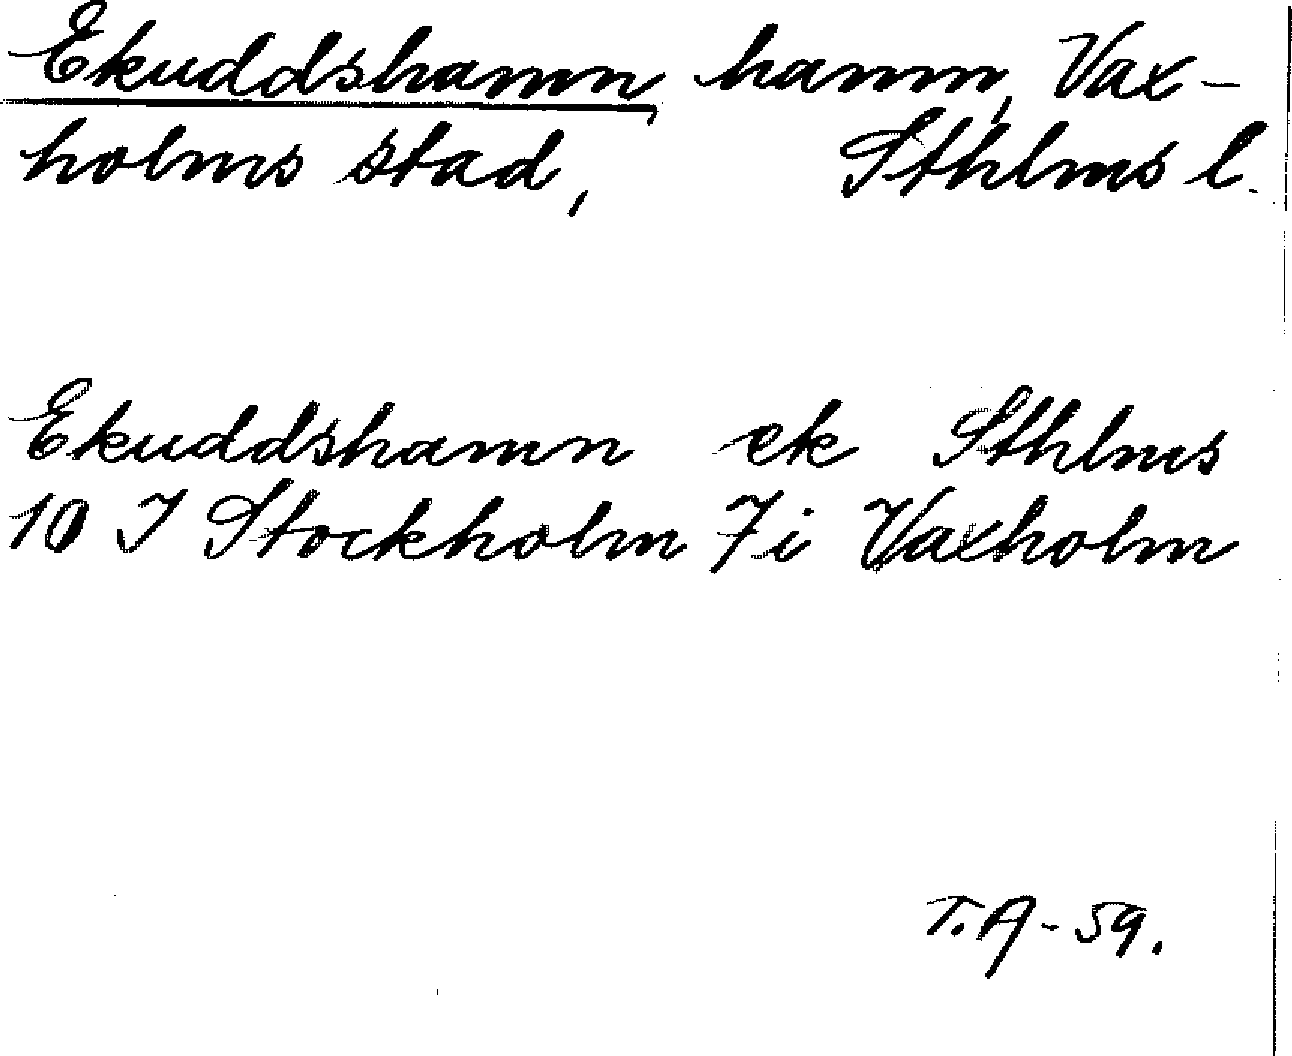 Ekuddshamn, hamn, Vax-
holms stad, Sthlms l.
Ekuddshamn ek Sthlms
10 I Stockholm 7 i Vaxholm
T.A-59.